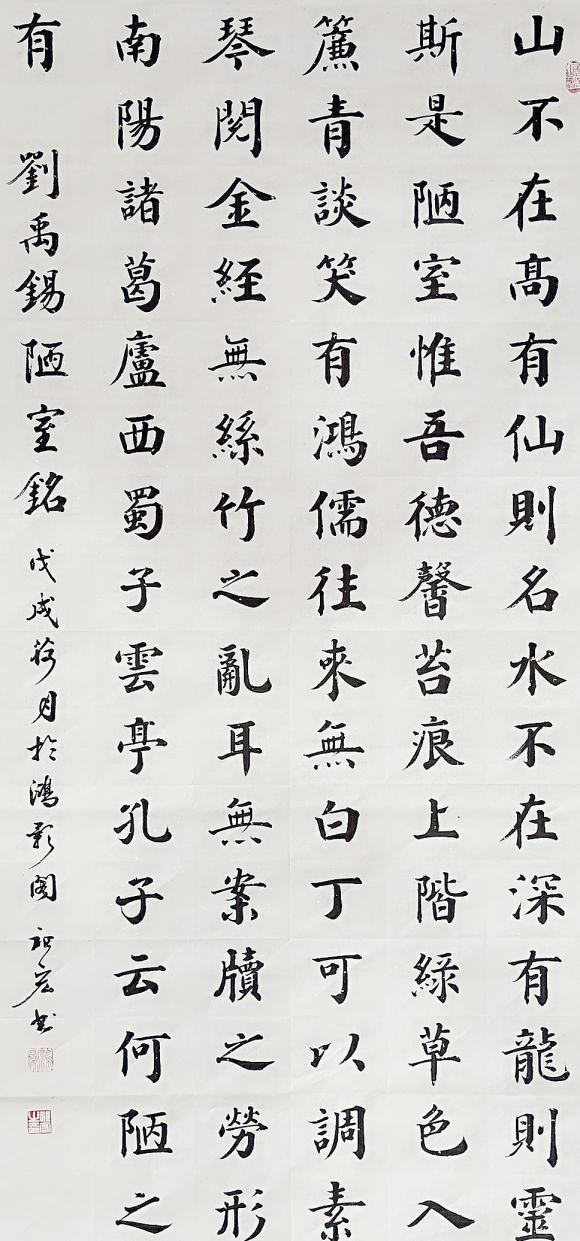 山不在高有仙則名水不在深有龍則靈
斯是陋室惟吾德馨苔痕上階綠草色入
簾青談笑有鴻儒往來無白丁可以調素
琴閱金經無絲竹之亂耳無案牘之勞形
南陽諸葛廬西蜀子雲亭孔子云何陋之
有
劉禹錫陋室銘
戊戌荷月於鴻影閣